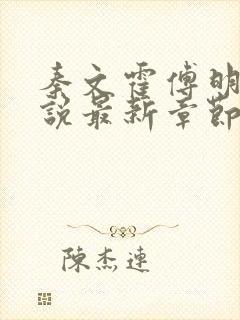 秦文霍傅明
說最新章節
陳杰連